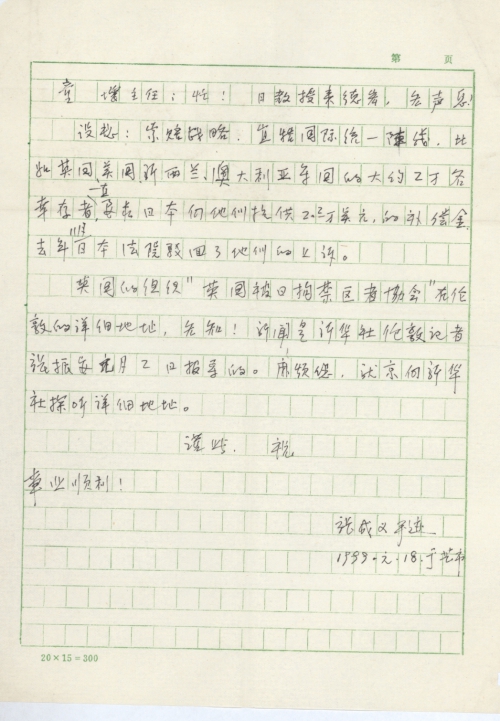 第 页
童增主任：忙！日教授来德等，无声息！
设想：索赔战略，宜搞国际统一陣线，比
如英国、美国新西兰、澳大利亚等国的大约2万名
幸存者，一直要求日本向他们提供2.3万美元，的补偿金，
去年11月日本法院驳回了他们的上诉。
英国的组织"英国被日拘禁区者协会"在伦
敦的详细地址，告知！新闻是新华社伦敦记者
张振安元月2日报导的。麻烦您，就京向新华
社探听详细地址。
谨此、祝
事业顺利！
张成义
1999.元.18.于
20×15=300